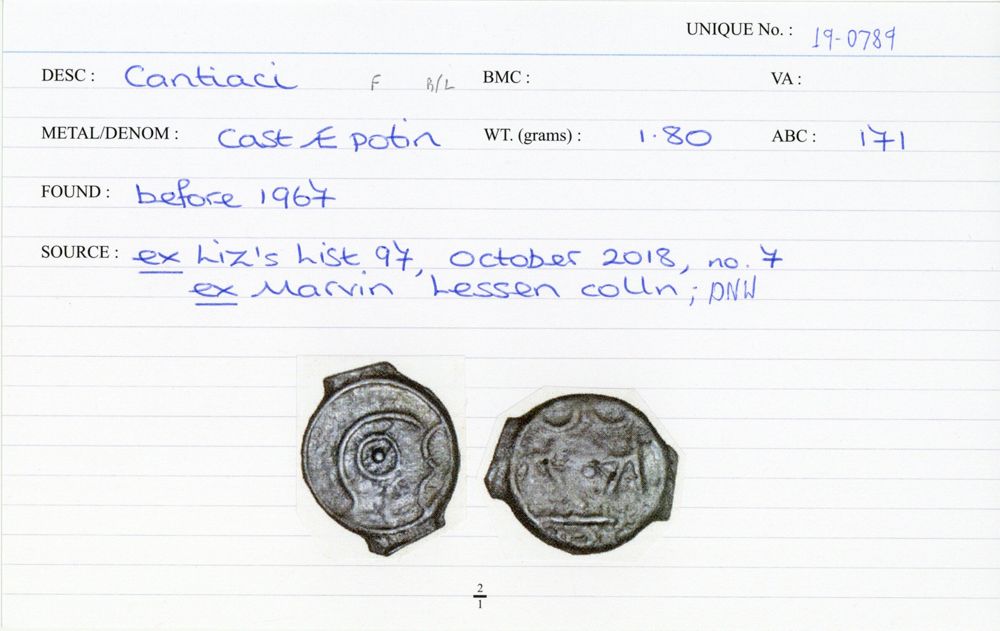 UNIQUE No. : 19-0789
DESC : Cantiaci F B/L BMC : VA :
METAL/DENOM : Cast Æ potin WT. (grams) : 1.80 ABC : 171
FOUND : before 1967
SOURCE : ex Liz's List 97, October 2018, no. 7
ex Marvin Lessen colln; DNW
2
1